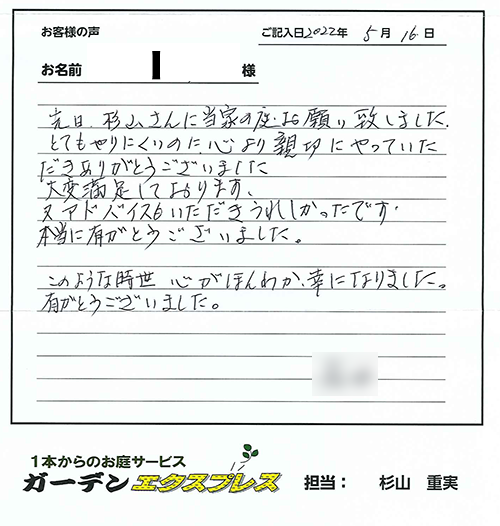 お客様の声
ご記入日2022年 5月 16日
お名前 様
先日、杉山さんに当家の庭をお願い致しました。
とてもやりにくいのに心より親切にやっていた
だきありがとうございました
大変満足しております、
又アドバイスもいただきうれしかったです・
本当に有がとうございました。
このような時世 心がほんわか、幸になりました。
有がとうございました。
1本からのお庭サービス
ガーデンエクスプレス 担当： 杉山 重実